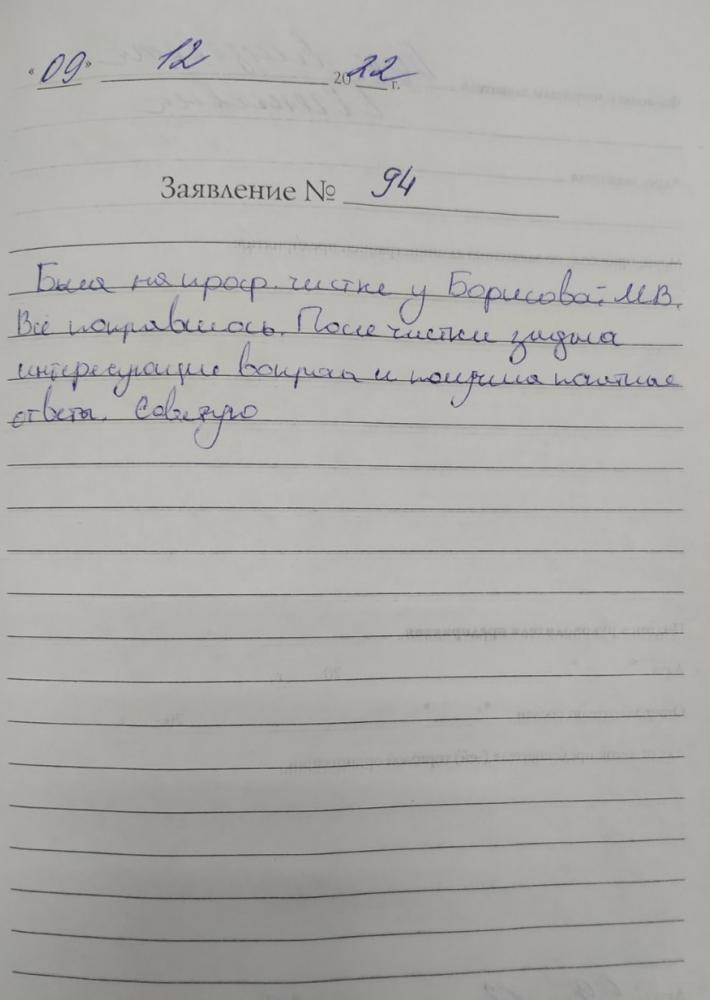 «09» 12 2022 г.
Заявление № 94
Была на проф. чистке у Борисовой М.В.
Всё понравилось. После чистки задала
интересующие вопросы и получила понятные
ответы. Советую